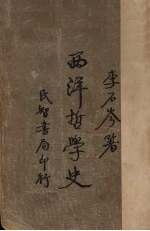 李石岑著
西洋哲學史
民智書局印行